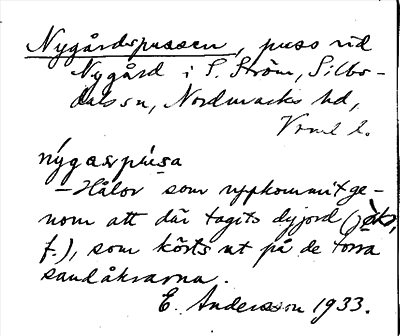 Nygårdspussen, puss vid
Nygård i S. Ström, Silbo-
dals sn, Nordmarks hd,
Vrml l.
nýgaṣpùsa
— Hålor som uppkommit ge-
nom att där tagits dyjord (jòḷs,
f.), som körts ut på de torra
sandåkrarna.
E. Andersson 1933.